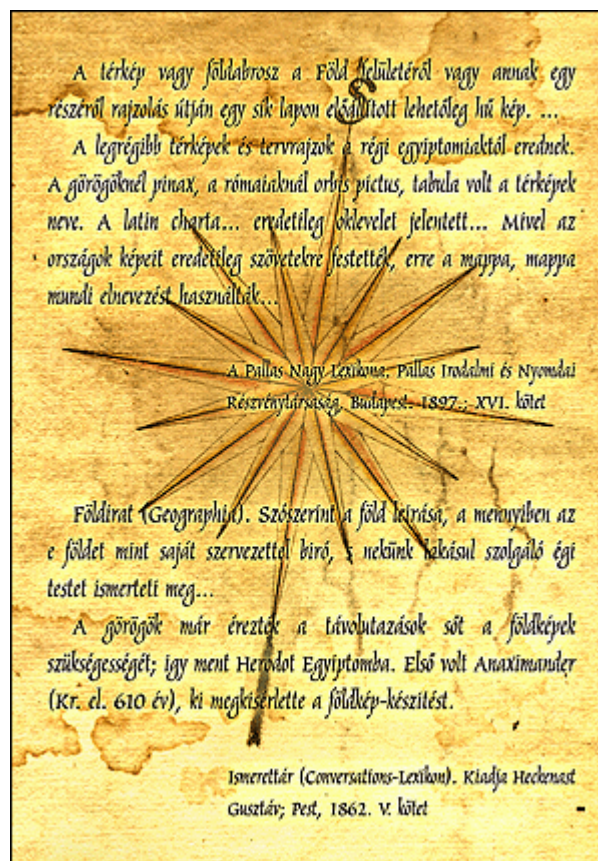 A térkép vagy földabrosz a Föld felületéről vagy annak egy
részéről rajzolás útján egy sík lapon előállított lehetőleg hű kép. ...
A legrégibb térképek és tervrajzok a régi egyiptomiaktól erednek.
A görögöknél pinax, a rómaiaknál orbis pictus, tabula volt a térképek
neve. A latin charta... eredetileg oklevelet jelentett... Mivel az
országok képeit eredetileg szövetekre festették, erre a mappa, mappa
mundi elnevezést használták...
A Pallas Nagy Lexikona; Pallas Irodalmi és Nyomdai
Részvénytársaság, Budapest. 1897.; XVI. kötet
Földirat (Geographia). Szószerint a föld leirása, a mennyiben az
e földet mint saját szervezettel biró, s nekünk lakásul szolgáló égi
testet ismerteti meg...
A görögök már érezték a távolutazások sőt a földképek
szükségességét; igy ment Herodot Egyiptomba. Első volt Anaximander
(Kr. el. 610 év), ki megkisérlette a földkép-készitést.
Ismerettár (Conversations-Lexikon). Kiadja Heckenast
Gusztáv; Pest, 1862. V. kötet